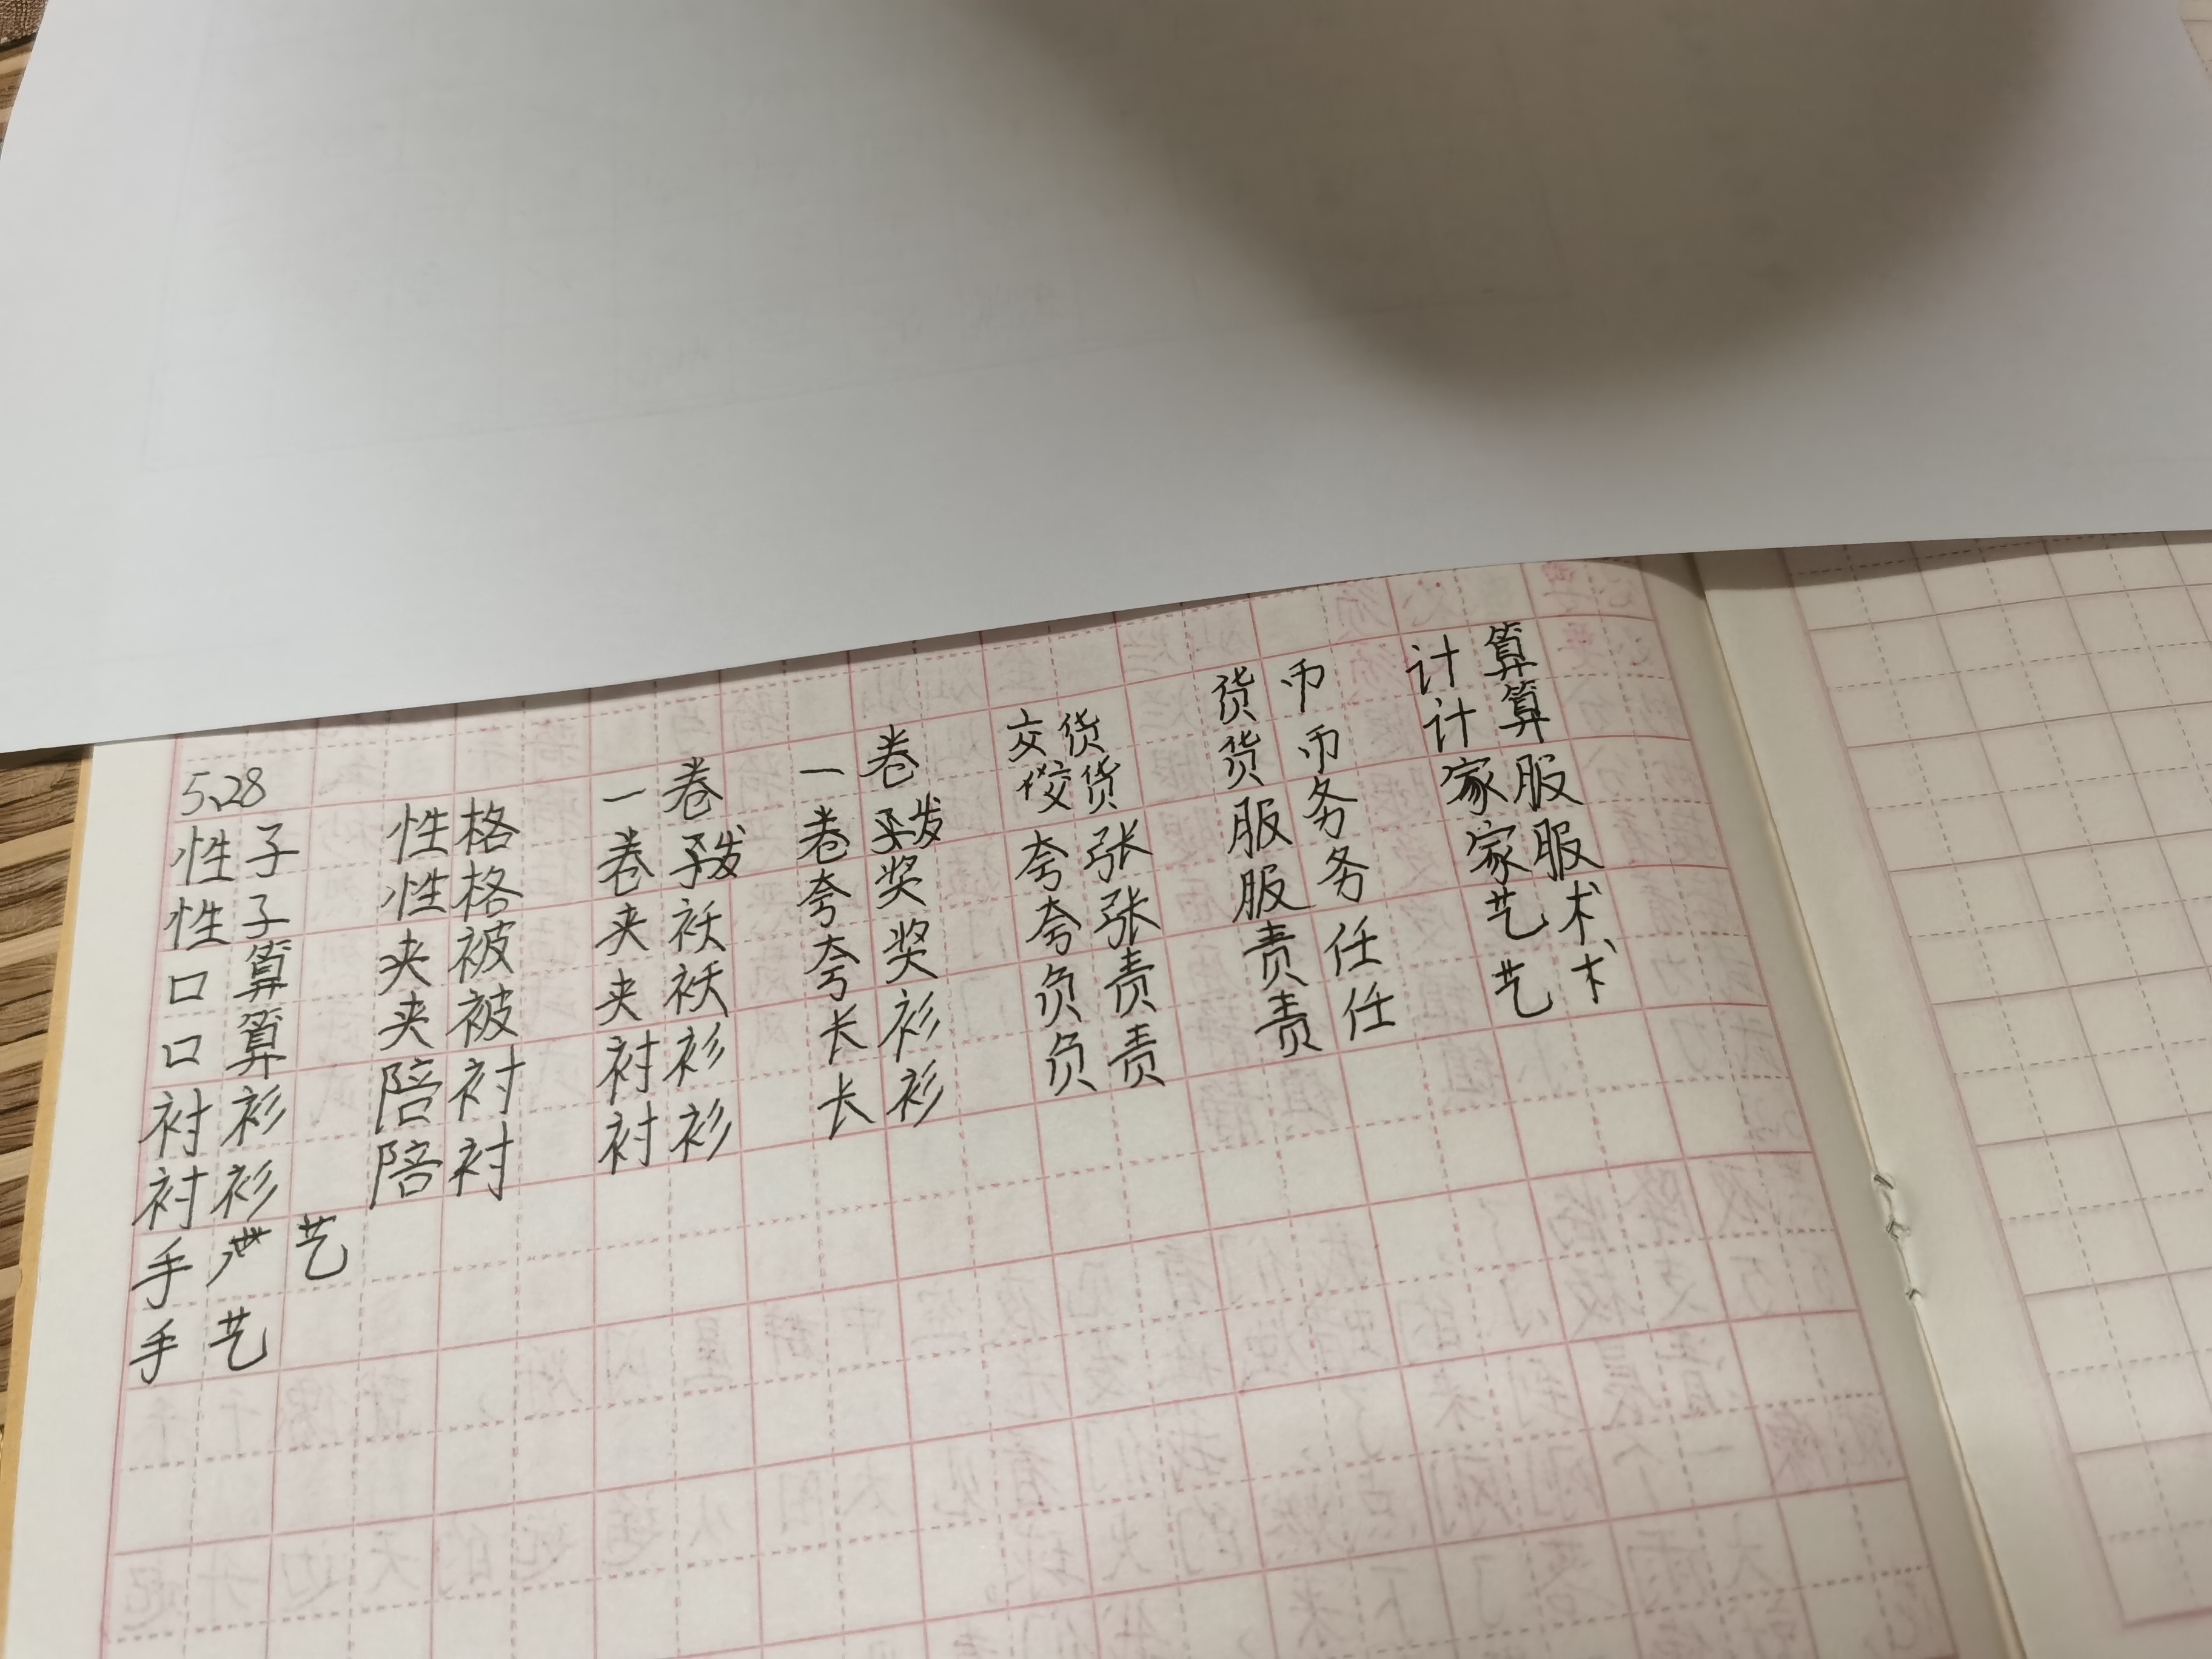 5.28
性子 性格 一卷 一卷 交货 货币 计算
性子 性格 卷 卷 货 货币 计算
口算 夹被 夹袄 夸奖 夸张 服务 家服
口算 夹被 夹袄 夸奖 夸张 服务 家服
衬衫 陪衬 衬衫 长衫 负责 责任 艺术
衬衫 陪衬 衬衫 长衫 负责 责任 艺术
手 艺
手艺